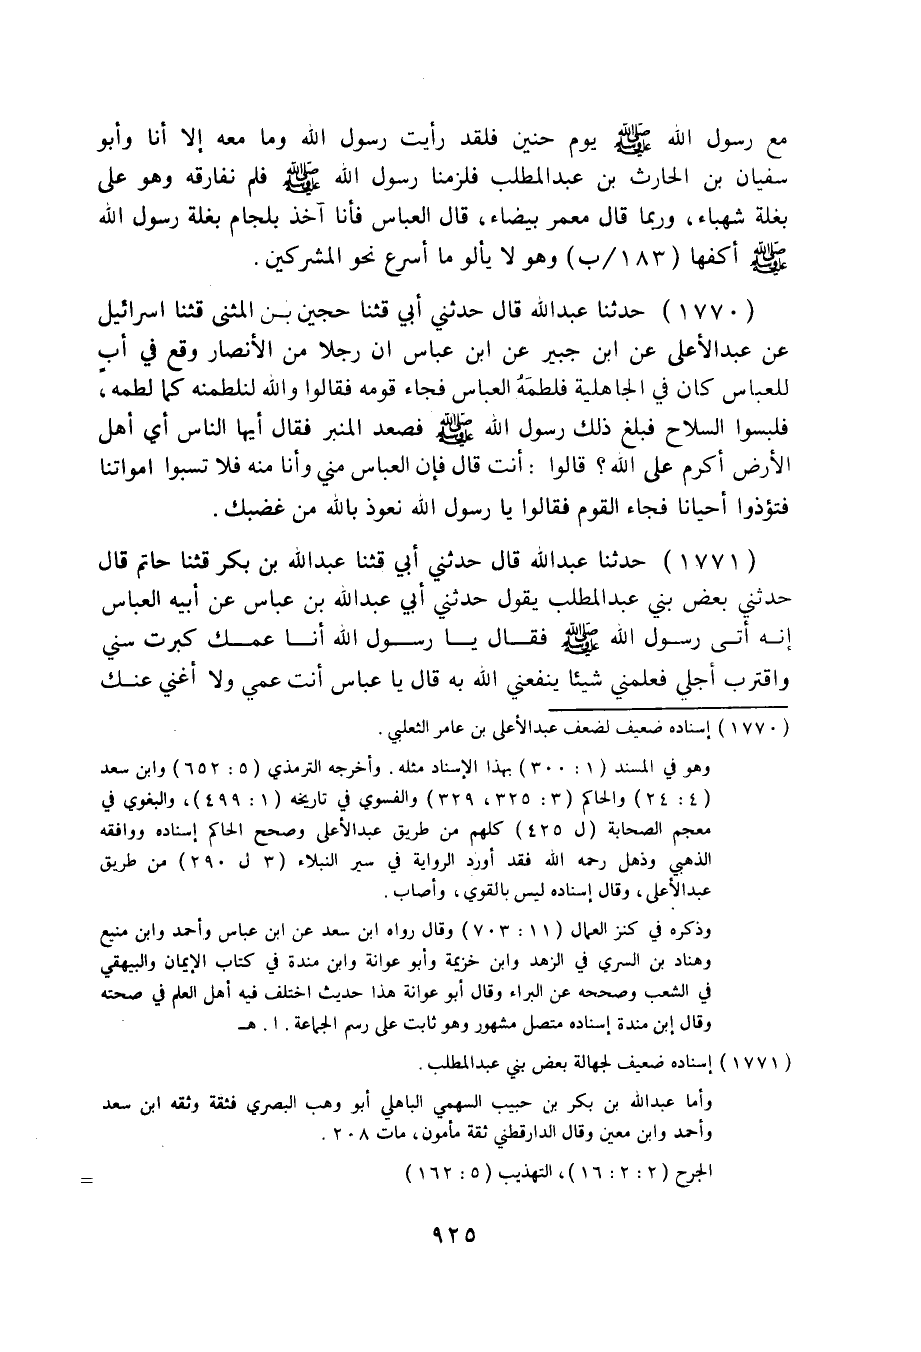 مع رسول الله ﷺ يوم حنين فلقد رأيت رسول الله وما معه إلا أنا وأبو
سفيان بن الحارث بن عبدالمطلب فلزمنا رسول الله ﷺ فلم نفارقه وهو على
بغلة شهباء، وربما قال معمر بيضاء، قال العباس فأنا آخذ بلجام بغلة رسول الله
ﷺ أكفها (١٨٣/ب) وهو لا يألو ما أسرع نحو المشركين.
(١٧٧٠) حدثنا عبدالله قال حدثني أبي قثنا حجين بـن المثنى قثنا اسرائيل
عن عبدالأعلى عن ابن جبير عن ابن عباس ان رجلا من الأنصار وقع في أبٍ
للعباس كان في الجاهلية فلطمَهُ العباس فجاء قومه فقالوا والله لنلطمنه كما لطمه،
فلبسوا السلاح فبلغ ذلك رسول الله ﷺ فصعد المنبر فقال أيها الناس أي أهل
الأرض أكرم على الله؟ قالوا : أنت قال فإن العباس مني وأنا منه فلا تسبوا امواتنا
فتؤذوا أحيانا فجاء القوم فقالوا يا رسول الله نعوذ بالله من غضبك.
(١٧٧١) حدثنا عبدالله قال حدثني أبي قثنا عبدالله بن بكر قثنا حاتم قال
حدثني بعض بني عبدالمطلب يقول حدثني أبي عبدالله بن عباس عن أبيه العباس
إنـه أتـى رسـول الله ﷺ فقـال يـا رسـول الله أنـا عمـك كبرت سني
واقترب أجلي فعلمني شيئا ينفعني الله به قال يا عباس أنت عمي ولا أغني عنـك
(١٧٧٠) إسناده ضعيف لضعف عبدالأعلى بن عامر الثعلبي.
وهو في المسند (١: ٣٠٠) بهذا الإسناد مثله. وأخرجه الترمذي (٥: ٦٥٢) وابن سعد
(٤: ٢٤) والحاكم (٣: ٣٢٥، ٣٢٩) والفسوي في تاريخه (١: ٤٩٩)، والبغوي في
معجم الصحابة (ل ٤٢٥) كلهم من طريق عبدالأعلى وصحح الحاكم إسناده ووافقه
الذهبي وذهل رحمه الله فقد أورد الرواية في سير النبلاء (٣ ل ٢٩٠) من طريق
عبدالأعلى، وقال إسناده ليس بالقوي، وأصاب.
وذكره في كنز العمال (١١: ٧٠٣) وقال رواه ابن سعد عن ابن عباس وأحمد وابن منيع
وهناد بن السري في الزهد وابن خزيمة وأبو عوانة وابن مندة في كتاب الإيمان والبيهقي
في الشعب وصححه عن البراء وقال أبو عوانة هذا حديث اختلف فيه أهل العلم في صحته
وقال إبن مندة إسناده متصل مشهور وهو ثابت على رسم الجماعة. ا. هـ
(١٧٧١) إسناده ضعيف لجهالة بعض بني عبدالمطلب.
وأما عبدالله بن بكر بن حبيب السهمي الباهلي أبو وهب البصري فثقة وثقه ابن سعد
وأحمد وابن معين وقال الدارقطني ثقة مأمون، مات ٢٠٨.
الجرح (٢: ٢: ١٦)، التهذيب (٥: ١٦٢)
=
٩٢٥